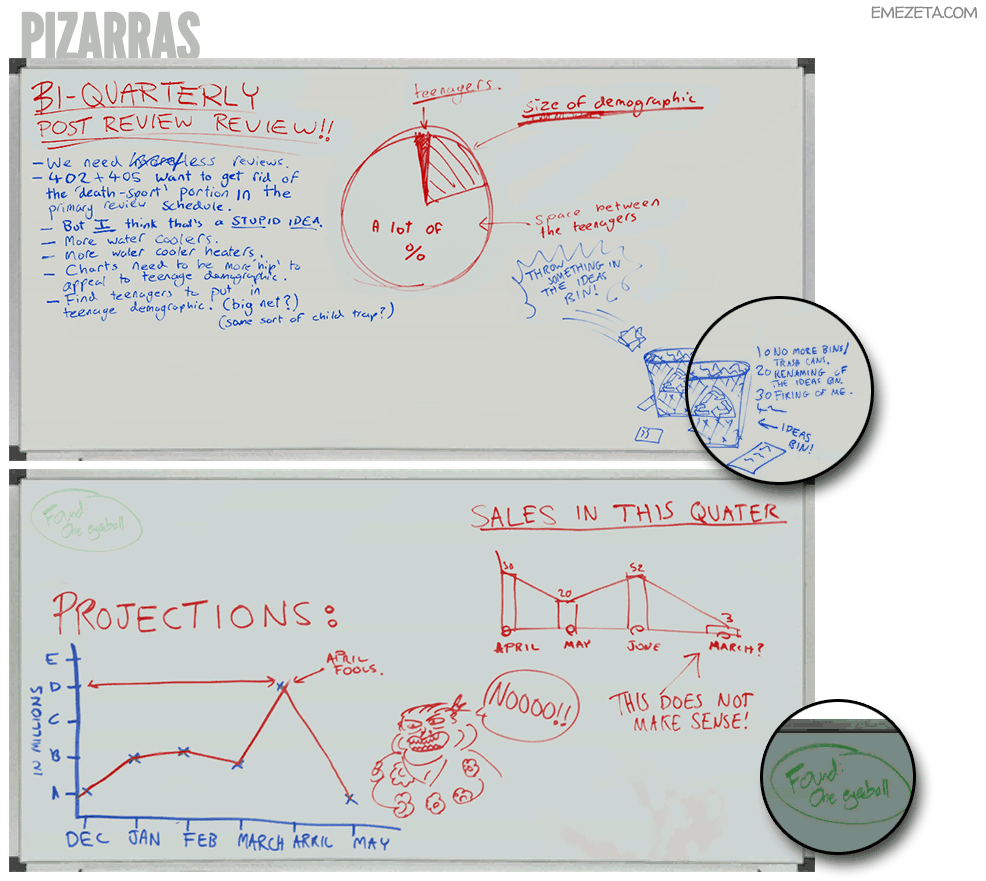 EMEZETA.COM
PIZARRAS
BI-QUARTERLY
POST REVIEW REVIEW!!
- We need less reviews.
- 402 + 405 want to get rid of
the 'death-sport' portion in the
primary review schedule.
- But I think that's a STUPID IDEA.
- More water coolers.
- More water cooler heaters.
- Charts need to be more 'hip' to
appeal to teenage damographic.
- Find teenagers to put in
teenage demographic. (big net?)
(some sort of child trap?)
teenagers.
size of demographic
A lot of
%
space between
the teenagers
THROW
SOMETHING IN
THE IDEAS
BIN!
10 NO MORE BINS/
TRASH CANS.
20 RENAMING OF
THE IDEAS BIN.
30 FIRING OF ME.
IDEAS
BIN!
Found:
One eyeball
SALES IN THIS QUATER
50
20
52
3
APRIL MAY JUNE MARCH?
THIS DOES NOT
MAKE SENSE!
PROJECTIONS:
APRIL
FOOLS.
E
D
C
B
A
IN MILLIONS
DEC JAN FEB MARCH APRIL MAY
NOOOO!!
Found:
One eyeball